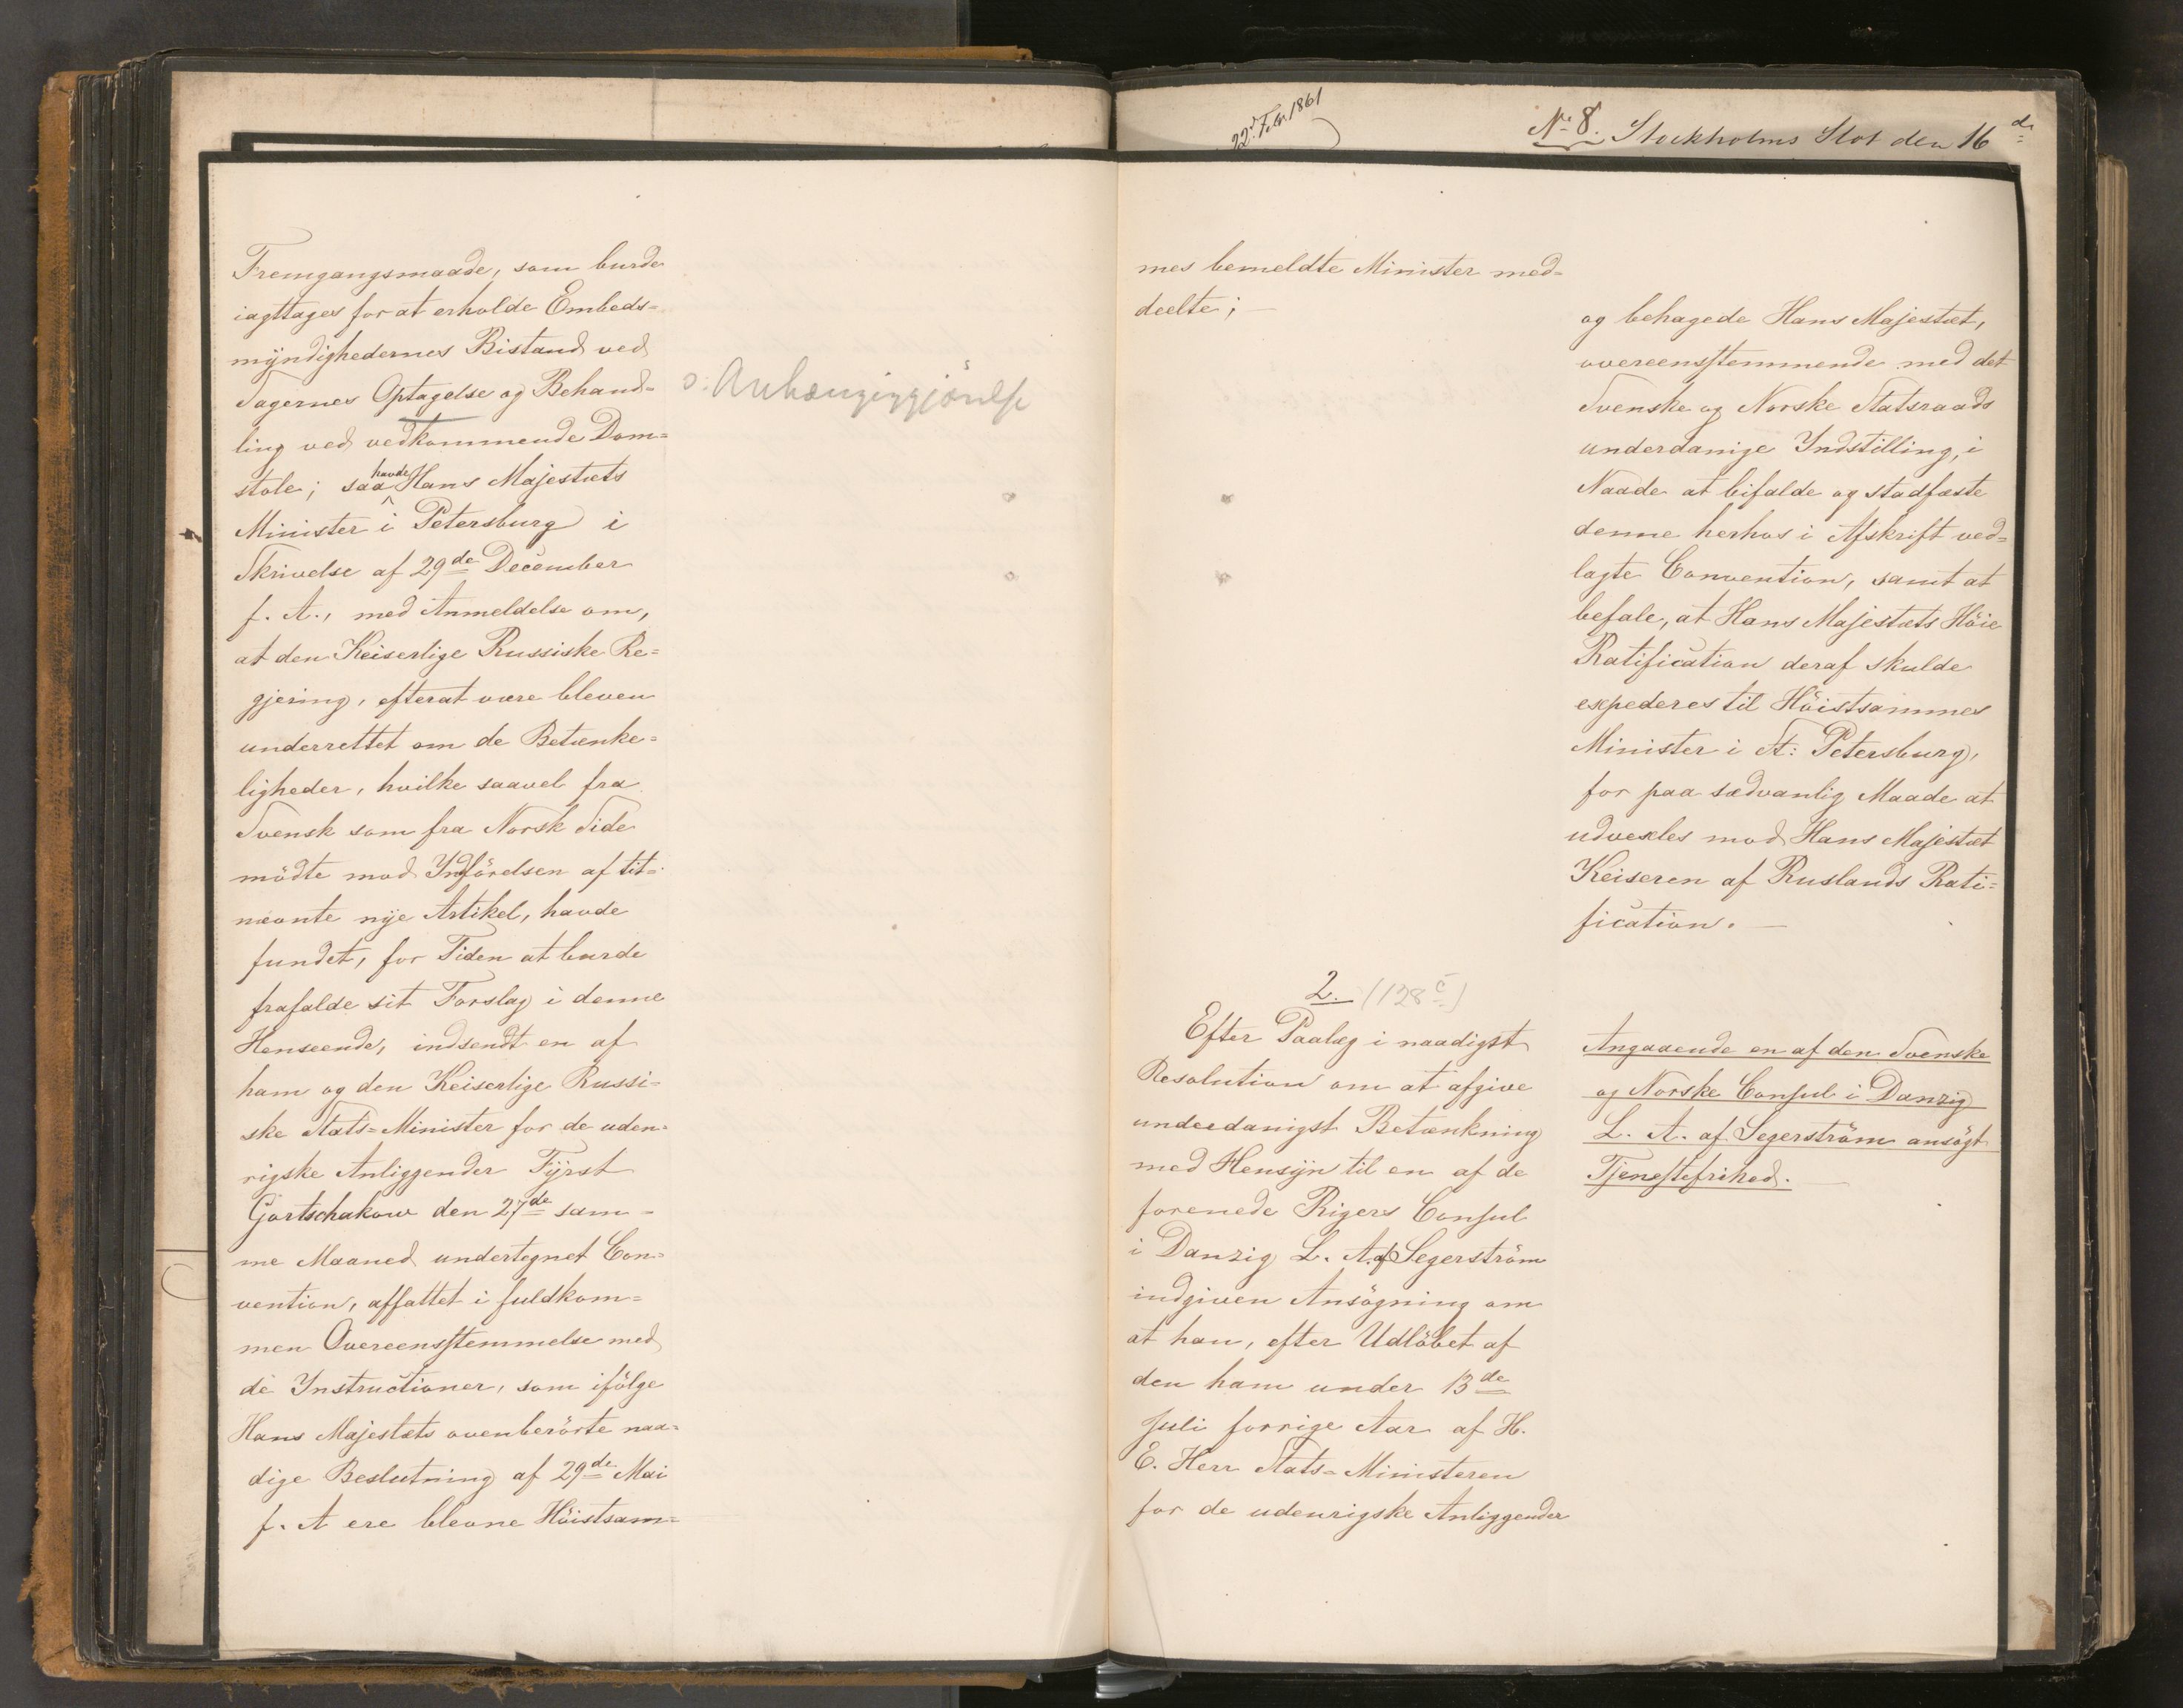 22d Febr. 1861
No 8. Stockholms Slot den 16de
Fremgangsmaade, som burde
iagttages for at erholde Embeds=
myndighedernes Bistand ved
Sagernes Optagelse og Behand=
ɔ: Anhængiggjörelse
ling ved vedkommende Dom=
stole; saa havde Hans Majestæts
Minister i Petersburg i
Skrivelse af 29de December
f. A., med Anmeldelse om,
at den Keiserlige Russiske Re=
gjering, efterat være bleven
underrettet om de Betænke=
ligheder, hvilke saavel fra
Svensk som fra Norsk Side
mödte mod Indförelsen af tit=
nævnte nye Artikel, havde
fundet, for Tiden at burde
frafalde sit Forslag i denne
Henseende, indsendt en af
ham og den Keiserlige Russi=
ske Stats=Minister for de uden=
rigske Anliggender Fyrst
Gortschakow den 27de sam=
me Maaned undertegnet Con=
vention, affattet i fuldkom=
men Overeensstemmelse med
de Instructioner, som ifölge
Hans Majestæts ovenberörte naa=
dige Beslutning af 29de Mai
f. A ere blevne Höistsam=
mes bemeldte Minister med=
deelte; —
og behagede Hans Majestæt,
overeensstemmende med det
Svenske og Norske Statsraads
underdanige Indstilling, i
Naade at bifalde og stadfæste
denne herhos i Afskrift ved=
lagte Convention, samt at
befale, at Hans Majestæts Höie
Ratification deraf skulde
expederes til Höistsammes
Minister i St: Petersburg,
for paa sædvanlig Maade at
udvexles mod Hans Majestæt
Keiseren af Ruslands Rati=
fication. —
2. (128c)
Efter Paalæg i naadigst
Resolution om at afgive
underdanigst Betænkning
med Hensyn til en af de
forenede Rigers Consul
i Danzig L. A. af Segerström
indgiven Ansögning om
at han, efter Udlöbet af
den ham under 13de
Juli forrige Aar af H.
E. Herr Stats=Ministeren
for de udenrigske Anliggender
Angaaende en af den Svenske
og Norske Consul i Danzig
L. A. af Segerström ansögt
Tjenestefrihed. —